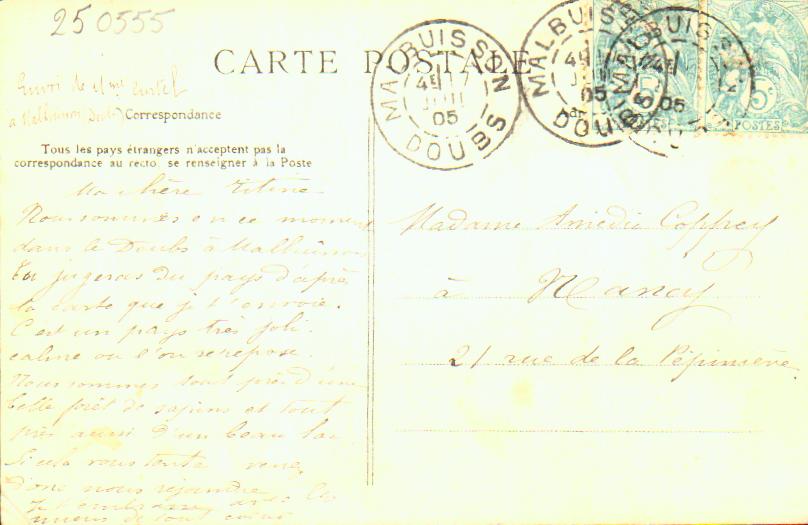 250555
CARTE POSTALE
Envoi de
à Malbuisson (Doubs) Correspondance
Tous les pays étrangers n'acceptent pas la
correspondance au recto, se renseigner à la Poste
Ma chère Titine
Nous sommes en ce moment
dans le Doubs à Malbuisson
Tu jugeras du pays d'après
la carte que je t'envoie.
C'est un pays très joli.
calme ou l'on se repose.
Nous sommes tout près d'une
belle forêt de sapins et tout
près aussi d'un beau lac
Si cela vous tente venez
donc nous rejoindre
Je t'embrasse avec les
miens de tout cœur
MALBUISSON
4E
05
DOUBS
MALBUISSON
4E
05
DOUBS
05
5c
POSTES
Madame Amédée Coppey
à Nancy
21 rue de la Pépinière